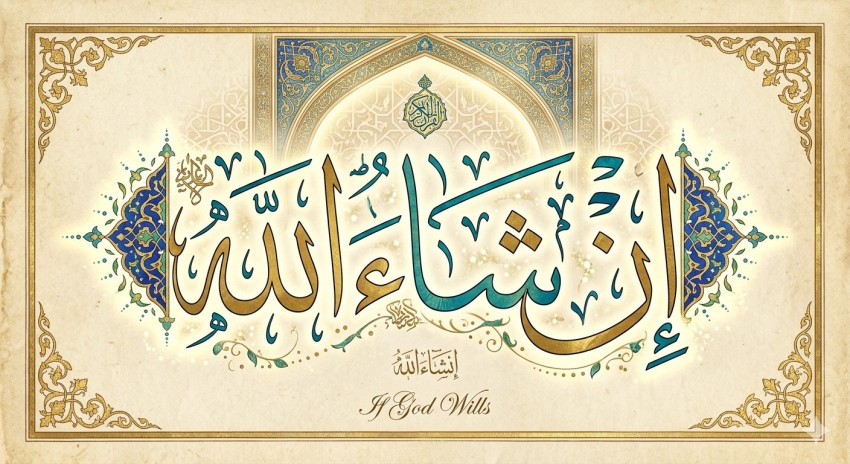 إِنْ شَاءَ اللَّهُ
إِنْشَاءَ اللَّهُ
If God Wills